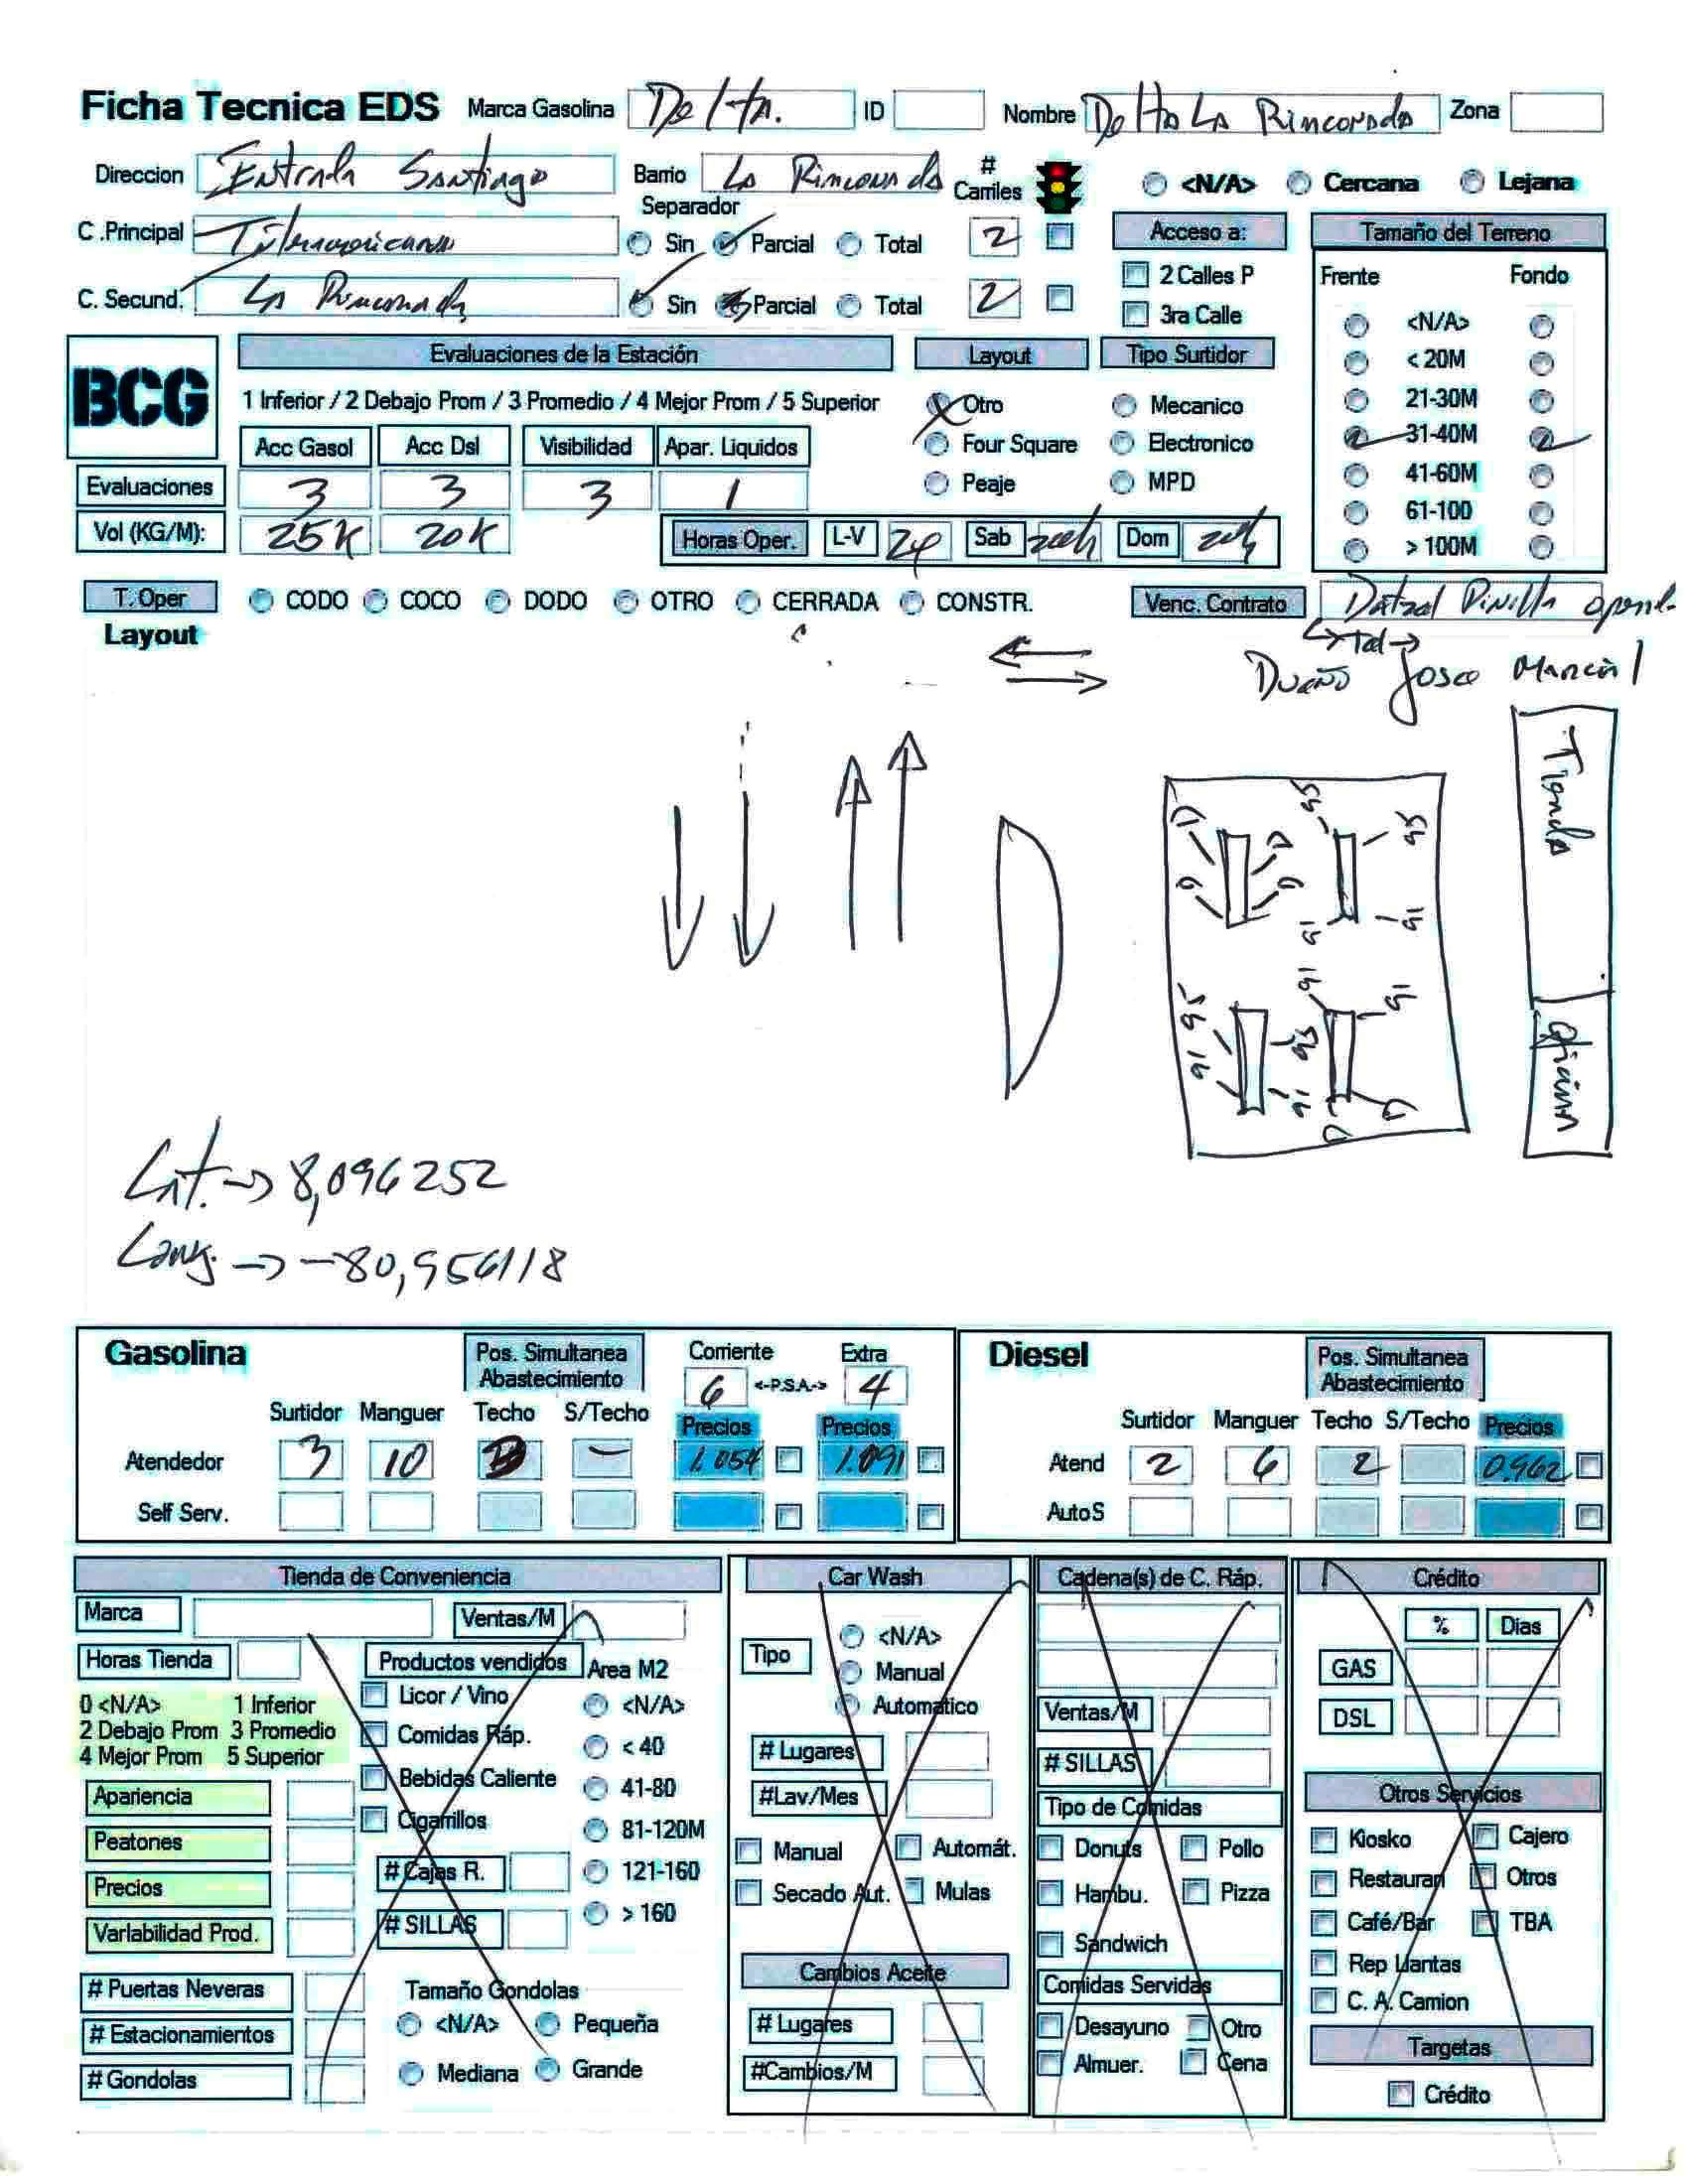 Ficha Tecnica EDS Marca Gasolina Delta. ID Nombre Delta La Rinconada Zona
Direccion Entrada Santiago Barrio La Rinconada # Carriles <N/A> Cercana Lejana
Separador
C .Principal Interamericana Sin Parcial Total 2 Acceso a: Tamaño del Terreno
2 Calles P Frente Fondo
C. Secund. La Rinconada Sin Parcial Total 2 3ra Calle <N/A>
BCG Evaluaciones de la Estación Layout Tipo Surtidor < 20M
1 Inferior / 2 Debajo Prom / 3 Promedio / 4 Mejor Prom / 5 Superior Otro Mecanico 21-30M
Acc Gasol Acc Dsl Visibilidad Apar. Liquidos Four Square Electronico 31-40M
Evaluaciones 3 3 3 1 Peaje MPD 41-60M
61-100
Vol (KG/M): 25K 20K Horas Oper. L-V 24 Sab Dom > 100M
T. Oper CODO COCO DODO OTRO CERRADA CONSTR. Venc. Contrato
Layout
Dueño Josee
Tienda
D D 95 95
D D 91 91
91 95 95 91 91 91
D D
Oficina
Lat. → 8,096252
Long. → -80,956118
Gasolina Pos. Simultanea Abastecimiento Corriente Extra Diesel Pos. Simultanea Abastecimiento
6 <-P.S.A.-> 4
Surtidor Manguer Techo S/Techo Precios Precios Surtidor Manguer Techo S/Techo Precios
Atendedor 3 10 - 1.054 1.091 Atend 2 6 2 0.962
Self Serv. Auto S
Tienda de Conveniencia Car Wash Cadena(s) de C. Ráp. Crédito
Marca Ventas/M <N/A> % Dias
Horas Tienda Productos vendidos Area M2 Tipo Manual GAS
0 <N/A> 1 Inferior Licor / Vino <N/A> Automatico Ventas/M DSL
2 Debajo Prom 3 Promedio Comidas Ráp. < 40 # Lugares # SILLAS
4 Mejor Prom 5 Superior
Apariencia Bebidas Caliente 41-80 #Lav/Mes Tipo de Comidas Otros Servicios
Peatones Cigarrillos 81-120M Manual Automát. Donuts Pollo Kiosko Cajero
Precios # Cajas R. 121-160 Secado Aut. Mulas Hambu. Pizza Restauran Otros
Variabilidad Prod. # SILLAS > 160 Sandwich Café/Bar TBA
# Puertas Neveras Tamaño Gondolas Cambios Aceite Comidas Servidas Rep Llantas
C. A. Camion
# Estacionamientos <N/A> Pequeña # Lugares Desayuno Otro Targetas
# Gondolas Mediana Grande #Cambios/M Almuer. Cena Crédito